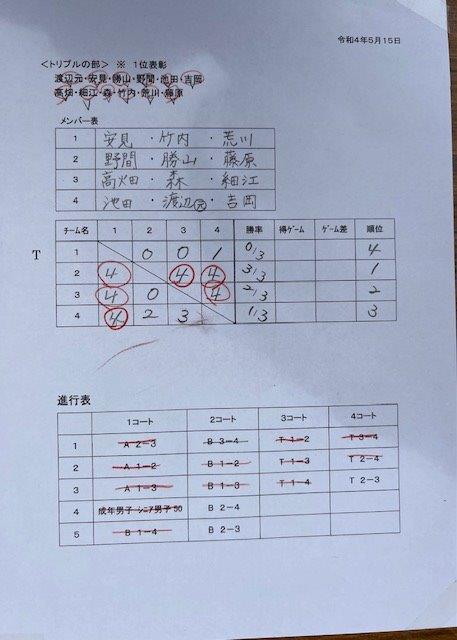 令和4年5月15日
<トリプルの部> ※ 1位表彰
渡辺元・安見・勝山・野間・池田・吉岡
高畑・細江・森・竹内・荒川・藤原
メンバー表
1 安見 ・ 竹内 ・ 荒川
2 野間 ・ 勝山 ・ 藤原
3 高畑 ・ 森 ・ 細江
4 池田 ・ 渡辺元 ・ 吉岡
T
チーム名 1 2 3 4 勝率 得ゲーム ゲーム差 順位
1 0 0 1 0/3 4
2 4 4 4 3/3 1
3 4 0 4 2/3 2
4 4 2 3 1/3 3
進行表
1コート 2コート 3コート 4コート
1 A 2-3 B 3-4 T 1-2 T 3-4
2 A 1-2 B 1-2 T 1-3 T 2-4
3 A 1-3 B 1-3 T 1-4 T 2-3
4 成年男子 シニア男子 50 B 2-4
5 B 1-4 B 2-3